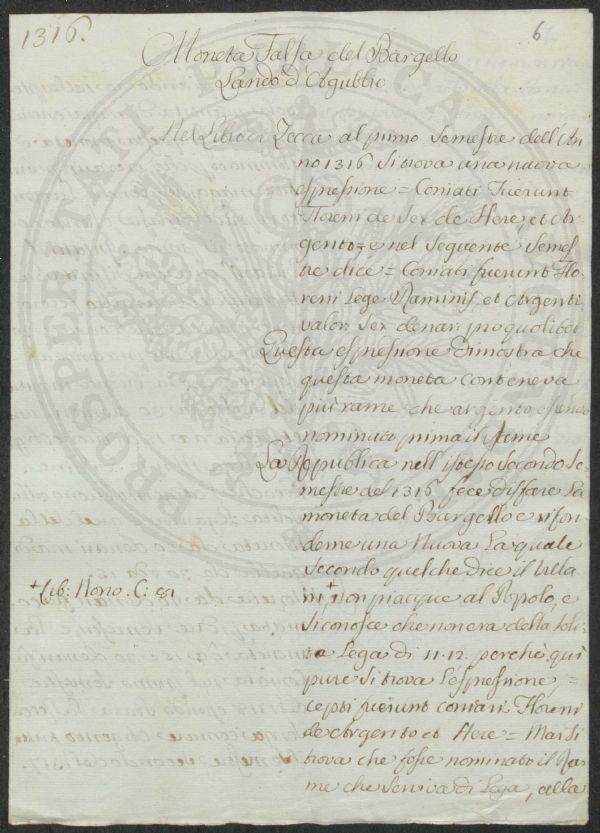 1316.
6
Moneta Falsa del Bargello
Lando d'Agubbio
Nel Libro di Zecca al primo Semestre dell'An
no 1316 Si trova una nuova
espressione = Coniati Fuerunt
Floreni de Sex de Here, et Ar
gento = e nel Seguente Semes
tre dice = Coniati fuerunt Flo
reni Lege Raminis, et Argenti
valor: Sex denar: pro quolibet
Questa espressione Dimostra che
questa moneta conteneva
piu rame che argento essendo
nominato prima il Rame
La Repubblica nell'istesso Secondo Se
mestre del 1316 fece disfare La
moneta del Bargello e rifon
deme una Nuova La quale
Secondo quelche dice il Villa
ni + non piacque al Popolo, e
+ Lib: Nono. C:
Si conosce che non era della soli
ta Lega di 11.12. perche qui
pure Si trova L'espressione, =
cepti fuerunt coniari Floreni
de Argento et Here = Mai Si
trova che fosse nominato il Ra
me che Serviva di Lega, alla
PROSPERITATI PUBLICAE